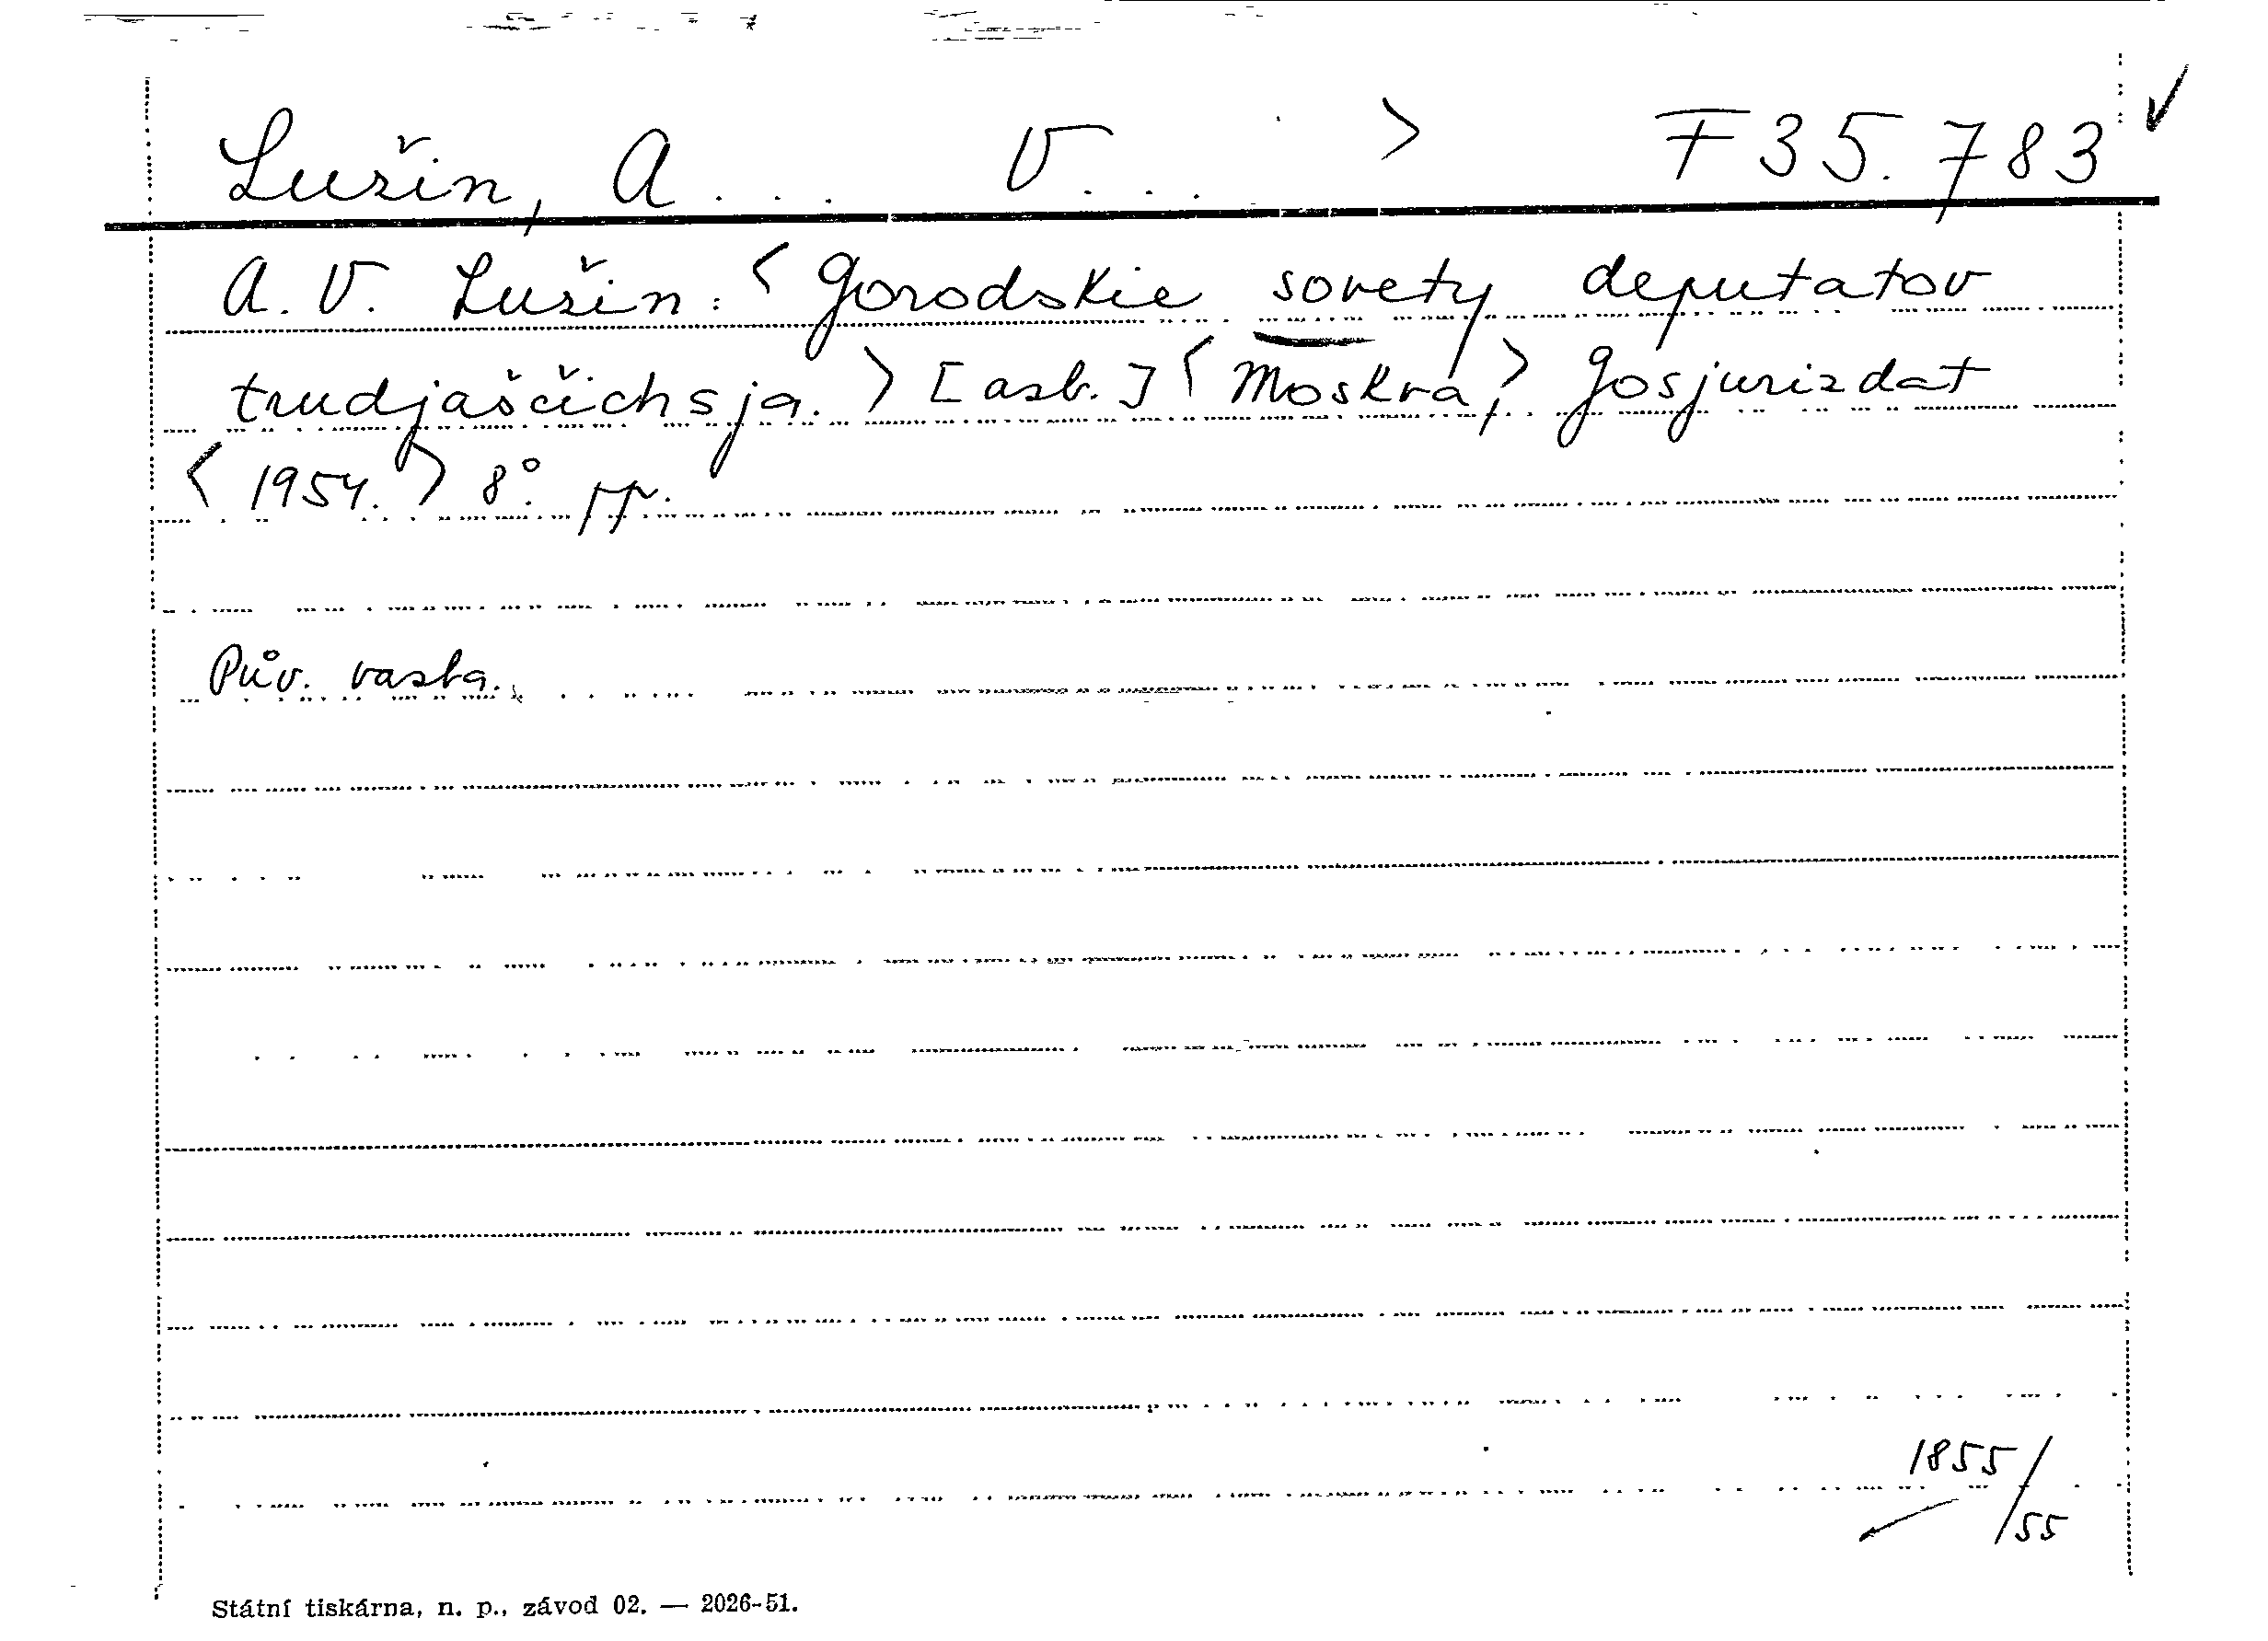 Lužin, A... V... > F 35.783
A. V. Lužin: < Gorodskie sovety deputatov
trudjaščichsja. > [azb.] < Moskva, > Gosjurizdat
< 1954. > 8°. pp.
Pův. vazba.
1855/
/55
Státní tiskárna, n. p., závod 02. — 2026-51.